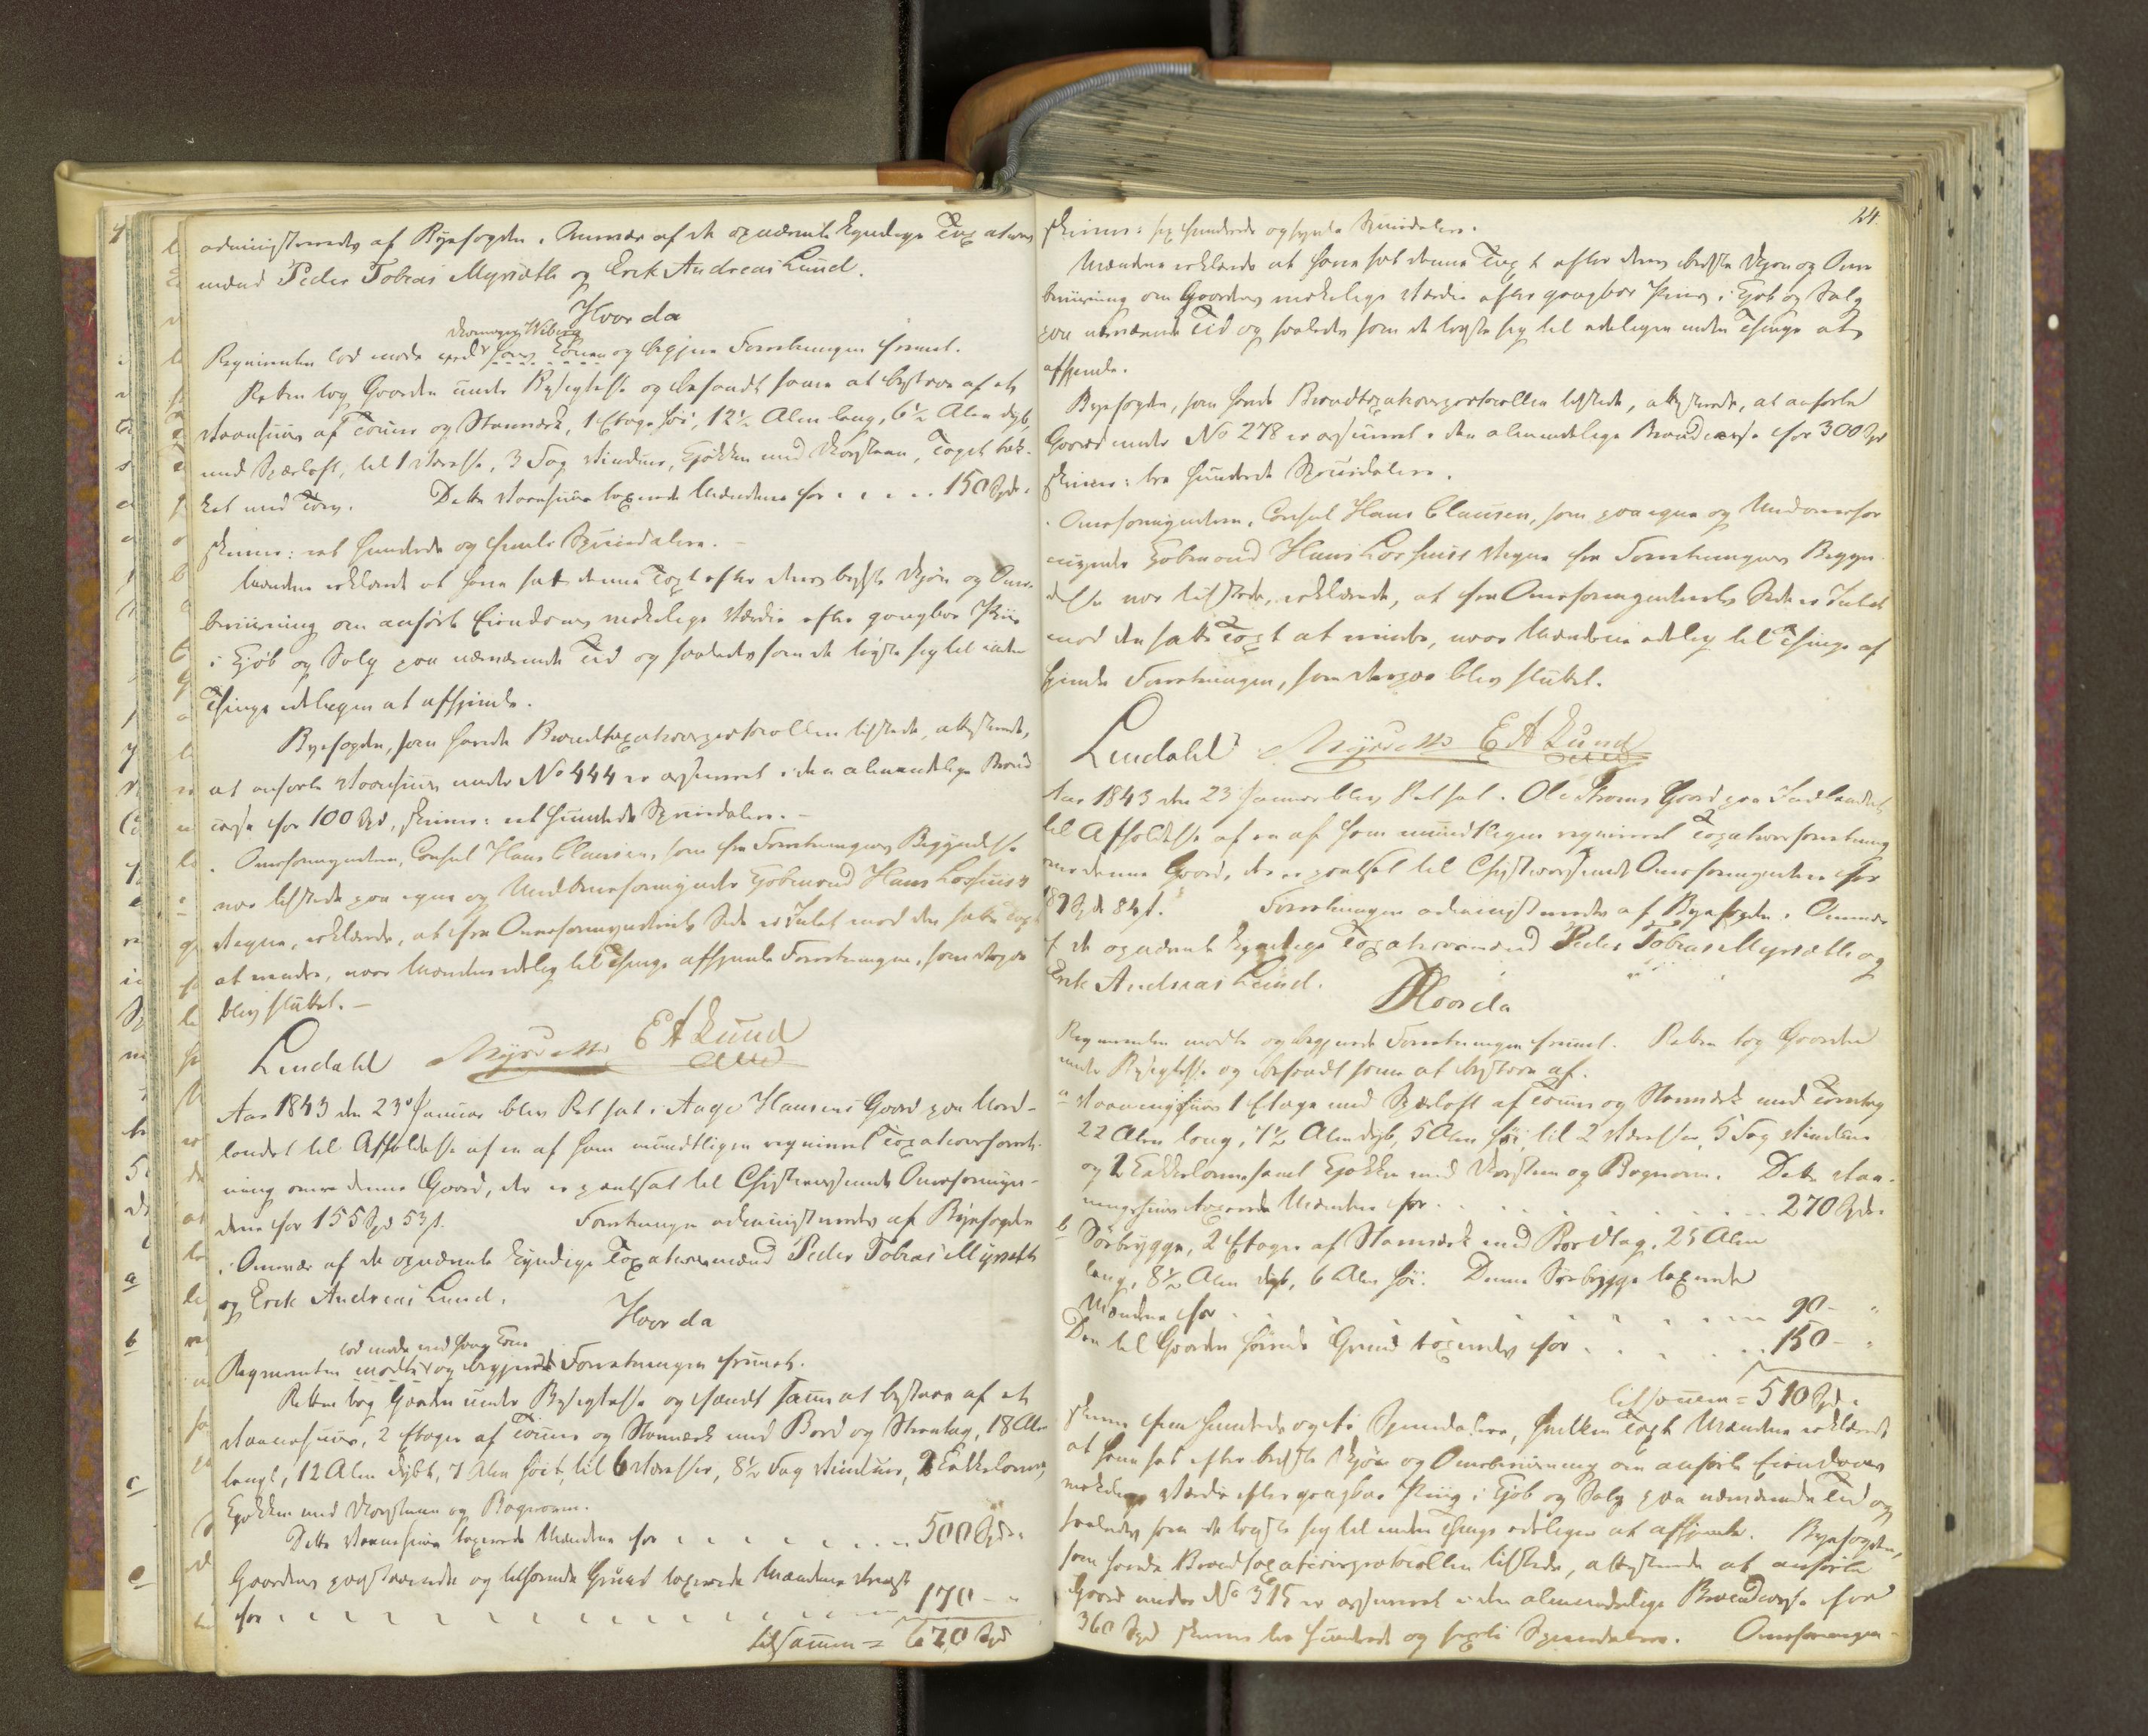 administreredes af Byefogden i Overvær af de opnævnte kyndige Taxations
mænd Peder Tobias Myrseth og Erik Andreas Lund.
Hvorda
Wiberg
Reqvirenten lod møde ved hans Kone og begjere Forretningen fremt.
Retten tog Gaarden under Besigtelse og befandt samme at bestaae af et
Vaanhuus af Tømmer og Stavværk, 1 Etage høi, 12½ Alen lang, 6½ Alen dyb,
med Spærloft, til 1 Værelse, 3 Fag Vinduer, Kjøkken med Skorsteen, Taget tæk-
ket med Torv. Dette Vaanhuus taxerede Mændene for . . . . 150 Spd.
skriver: et hundrede og femti Speciedaler. –
Mændene erklærede at have sat denne Taxt efter deres bedste Skjøn og Over-
beviisning om anførte Eiendoms virkelige Værdie efter gangbar Priis
i Kjøb og Salg paa nærværende Tid og saaledes som de tryste sig til inden
Thinge edeligen at afhjemle.
Byefogden, som havde Brandtaxationsprotocollen tilstede, attesterede,
at anførte Vaanhuus under No 444 er assureret i den almindelige Brand
casse for 100 Spd, skriver: et hundrede Speciedaler. –
Overformynderen, Consul Hans Clausen, som fra Forretningens Begyndelse
var tilstede paa egne og Medoverformynder Kjøbmand Hans Loshuus's
Vegne, erklærede, at fra Overformynderiets Side er Intet mod den satte Taxt
at erindre, naar Mændene edelig til Thinge afhjemle Forretningen, som derpaa
blev sluttet. –
Lindahl Myrseth E A Lund
Aar 1843 den 23de Januar blev Ret sat i Aage Hansens Gaard paa Nord-
landet til Afholdelse af en af ham mundtligen reqvireret Taxationsforret-
ning over denne Gaard, der er pantsat til Christiansunds Overformyn-
derie for 155 Spd 53 s. Forretningen administreredes af Byefogden
i Overvær af de opnævnte kyndige Taxationsmænd Peder Tobias Myrseth
og Erik Andreas Lund.
Hvorda
lod møde ved hans Kone
Reqvirenten mødte og begjerede Forretningen fremt.
Retten tog Gaarden under Besigtelse og fandt samme at bestaae af et
Vaanehuus, 2 Etager af Tømmer og Stavværk med Bord og Steentag, 18 Alen
langt, 12 Alen dybt, 7 Alen høit, til 6 Værelser, 8½ Fag Vinduer, 2 Kakkelovne,
Kjøkken med Skorsteen og Bagerovn.
Dette Vaanehuus taxerede Mændene for . . . . . . . 500 Spd.
Gaardens paastaaende og tilhørende Grund taxerede Mændene
for . . . . . . . . . . . . . . . 170 - "
tilsammen = 670 Spd
24.
skriver: sex hundrede og sytti Speciedaler.
Mændene erklærede at have sat denne Taxt efter deres bedste Skjøn og Over
beviisning om Gaardens virkelige Værdie efter gangbar Priis i Kjøb og Salg
paa nærværende Tid og saaledes som de tryste sig til edeligen inden Thinge at
afhjemle.
Byefogden, som havde Brandtaxationsprotocollen tilstede, attesterede, at anførte
Gaard under No 278 er assureret i den almindelige Brandcasse for 300 Spd
skriver: tre hundrede Speciedaler.
Overformynderen, Consul Hans Clausen, som paa egne og Medoverfor
mynder Kjøbmand Hans Loshuus's Vegne fra Forretningens Begyn-
delse var tilstede, erklærede, at fra Overformynderiets Side er Intet
mod den satte Taxt at erindre, naar Mændene edelig til Thinge af
hjemle Forretningen, som derpaa blev sluttet.
Lindahl Myrseth E A Lund
Aar 1843 den 23 Januar blev Ret sat i Ole Thoms Gaard paa Indlandet
til Afholdelse af en af ham mundtligen reqvireret Taxationsforretning
over denne Gaard, der er pantsat til Christiansunds Overformynderie for
187 Spd 84 s. Forretningen administreredes af Byefogden i Overvær
af de opnævnte kyndige Taxationsmænd Peder Tobias Myrseth og
Erik Andreas Lund.
Hvorda
Reqvirenten mødte og begjerede Forretningen fremt. Retten tog Gaarden
under Besigtelse og befandt samme at bestaae af.
a Vaaningshuus 1 Etage med Spærloft af Tømmer og Stavværk med Torvtag
22 Alen lang, 7½ Alen dyb, 5 Alen høi, til 2 Værelser, 5 Fag Vinduer
og 2 Kakkelovne samt Kjøkken med Skorsteen og Bagerovn. Dette Vaa-
ningshuus taxerede Mændene for . . . . . . . . 270 Spd.
b Søebrygge, 2 Etager af Stavværk med Bordtag, 25 Alen
lang, 8½ Alen dyb, 6 Alen høi. Denne Søebrygge taxerede
Mændene for . . . . . . . . 90 - "
Den til Gaarden hørende Grund taxeredes for . . . . . 150 - "
tilsammen = 510 Spd.
skriver fem hundrede og ti Speciedaler, hvilken Taxt Mændene erklærede
at have sat efter bedste Skjøn og Overbeviisning om anførte Eiendoms
virkelige Værdie efter gangbar Priis i Kjøb og Salg paa nærværende Tid og
saaledes som de tryste sig til inden Thinge edeligen at afhjemle. Byefogden,
som havde Brandtaxationsprotocollen tilstede, attesterede at anførte
Gaard under No 315 er assureret i den almindelige Brandcasse for
360 Spd skriver tre hundrede og sexti Speciedaler. Overformyn-